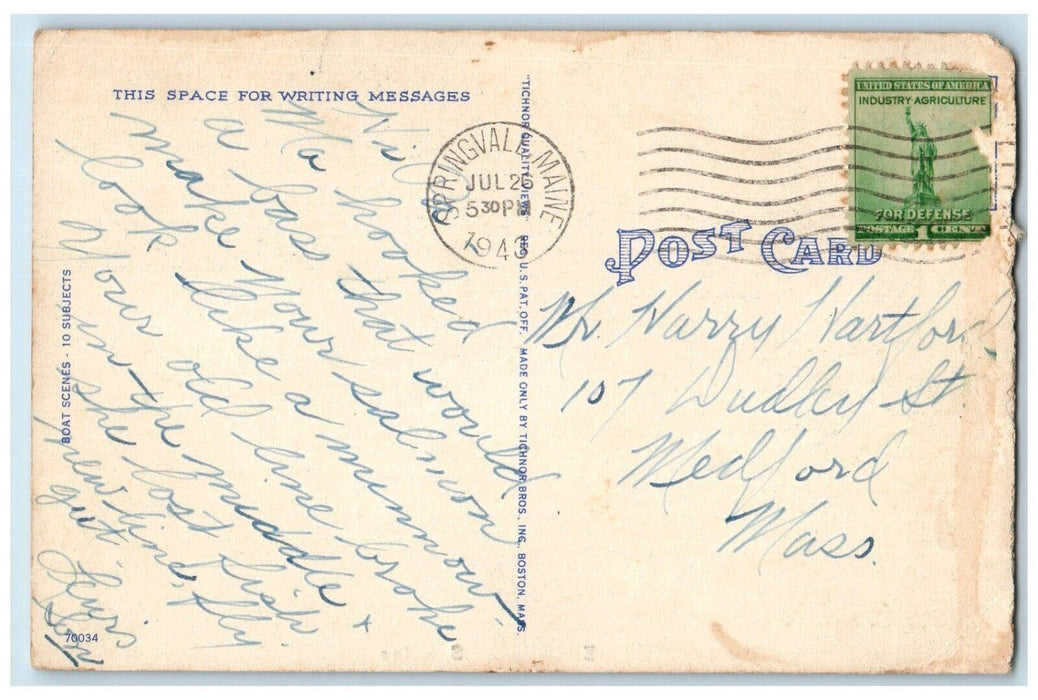 THIS SPACE FOR WRITING MESSAGES
Hi
Ma hooked
a bass that would
make your salmon
look like a minnow-
Your old line broke
in-the middle +
she lost fish
new line, fly
gut
BOAT SCENES - 10 SUBJECTS
70034
"TICHNOR QUALITY VIEWS," REG. U. S. PAT. OFF. MADE ONLY BY TICHNOR BROS., INC., BOSTON, MASS.
SPRINGVALE, MAINE
JUL 26
5 30 PM
UNITED STATES OF AMERICA
INDUSTRY AGRICULTURE
FOR DEFENSE
POSTAGE 1 CENT
POST CARD
Mr. Harry Hartford
107 Dudley St
Medford
Mass.